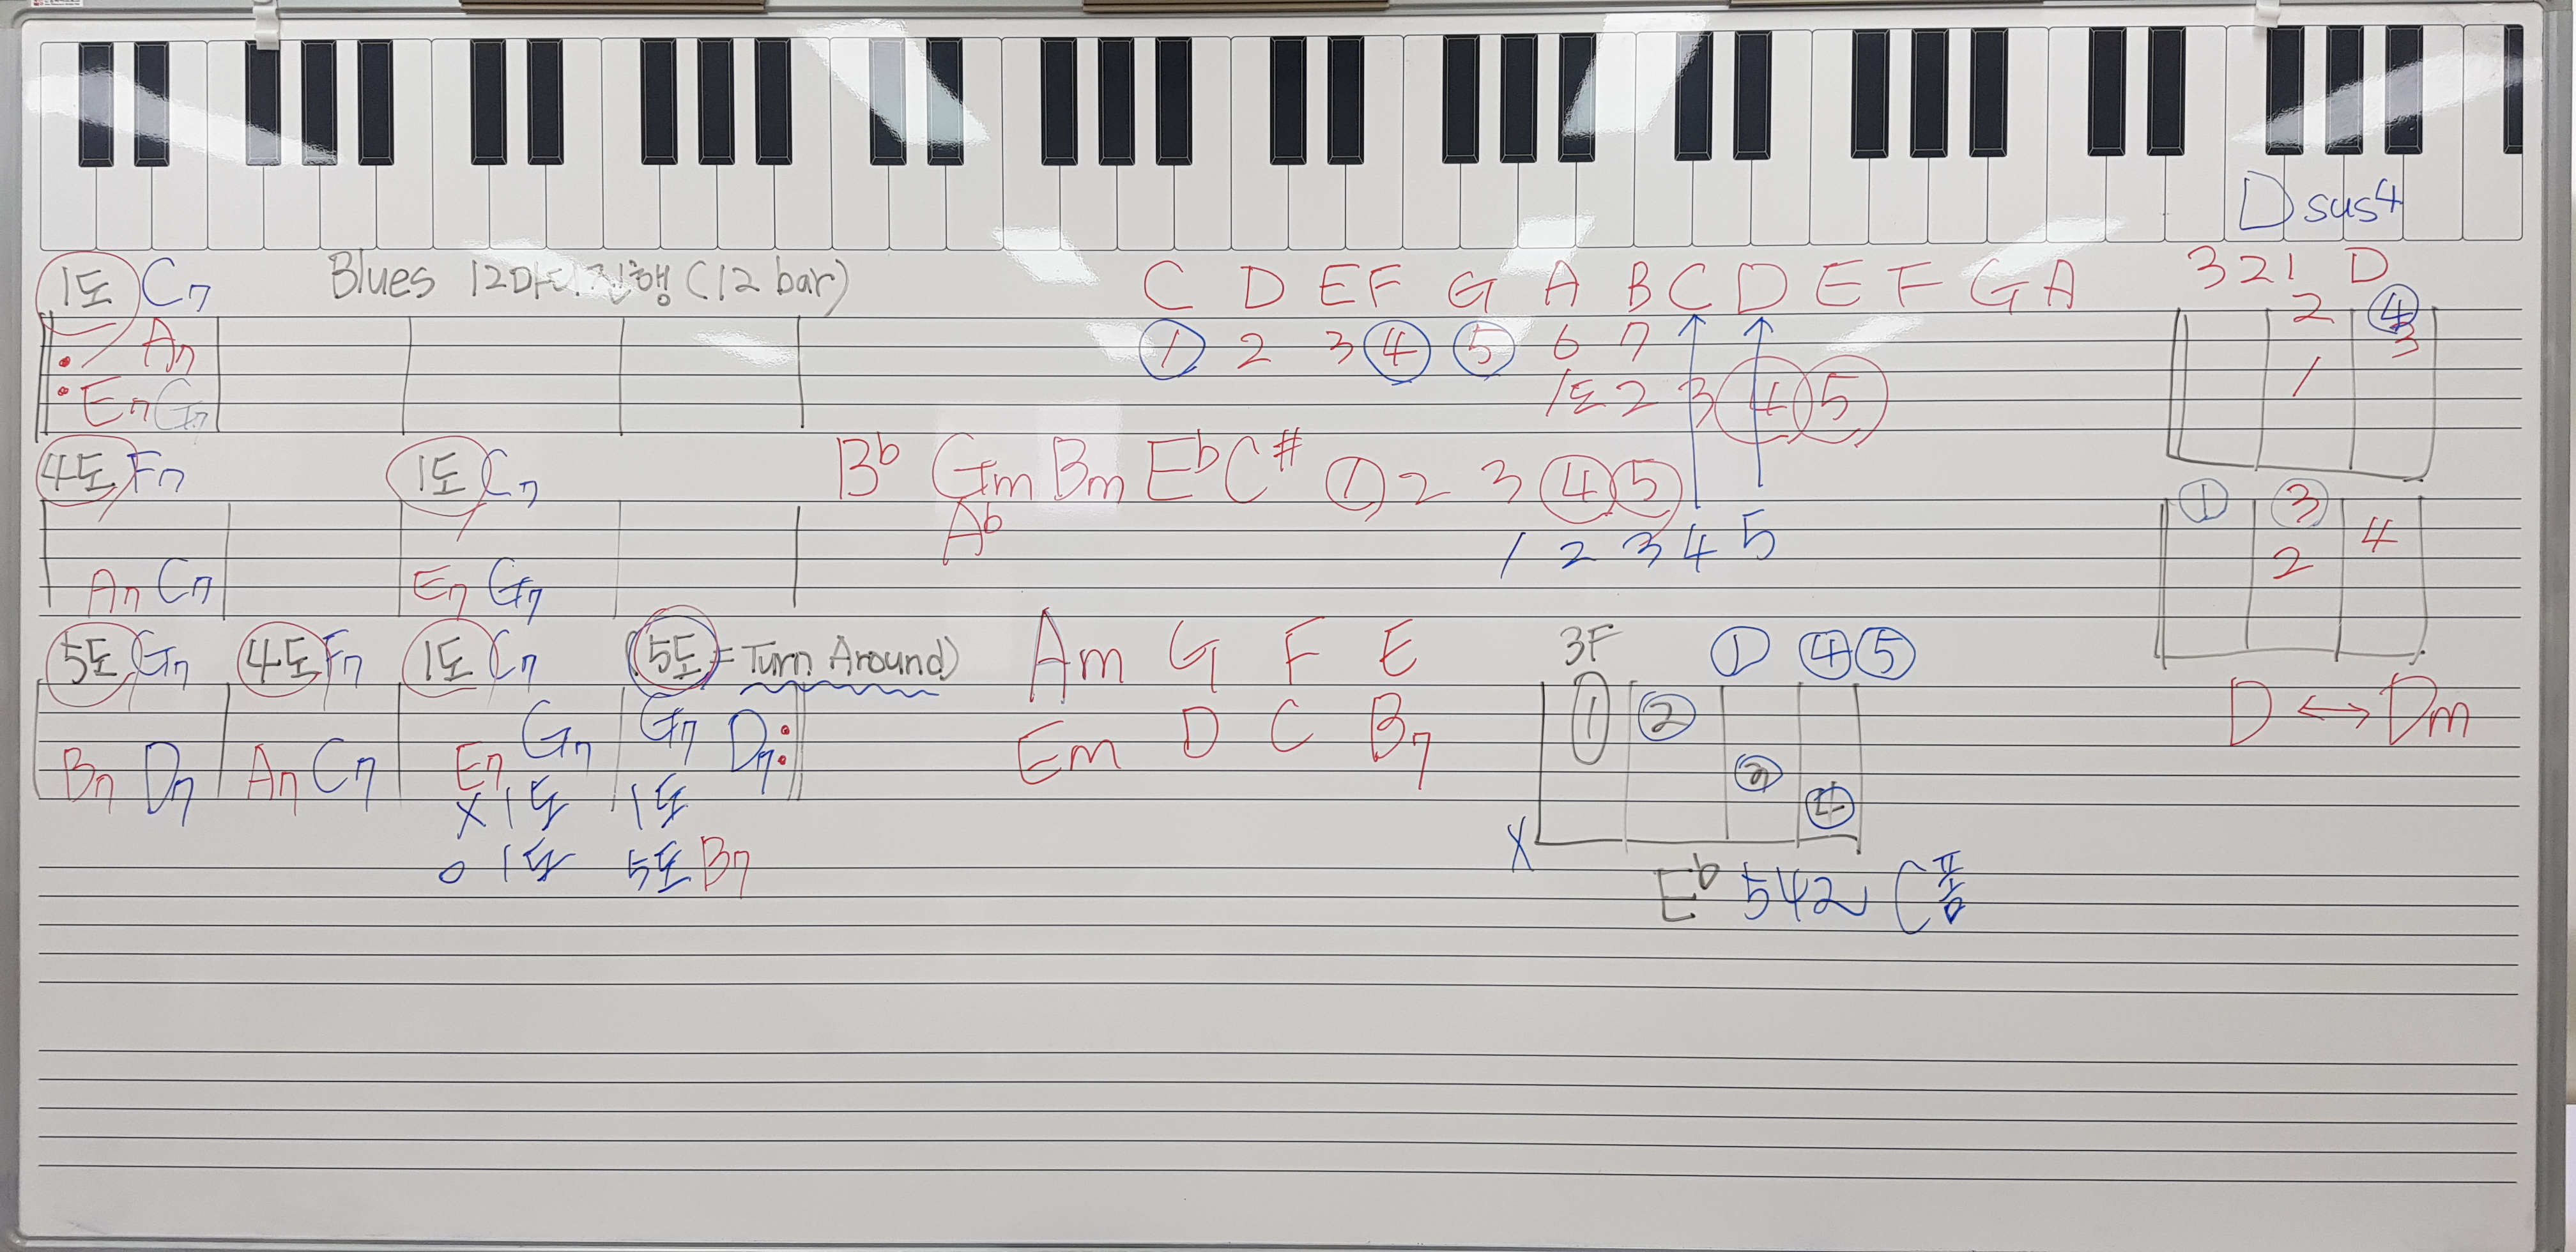 Dsus4
1도 C7 Blues 12마디진행(12 bar) C D E F G A B C D E F G A 3 2 1 D
A7 ① 2 3 ④ ⑤ 6 7 2 ④
3
E7 G7 1도 2 3 ④ ⑤ 1
4도 F7 1도 C7 B♭ Gm Bm E♭ C# ① 2 3 ④ ⑤ ① ③
A♭ 1 2 3 4 5 2 4
A7 C7 E7 G7
5도 G7 4도 F7 1도 C7 (5도=Turn Around) Am G F E 3F ① ④ ⑤
B7 D7 A7 C7 E7 G7 G7 D7 Em D C B7 1 ② ③ ④ D ↔ Dm
X 1도 1도
O 1도 5도 B7 X
E♭ 542 C폼